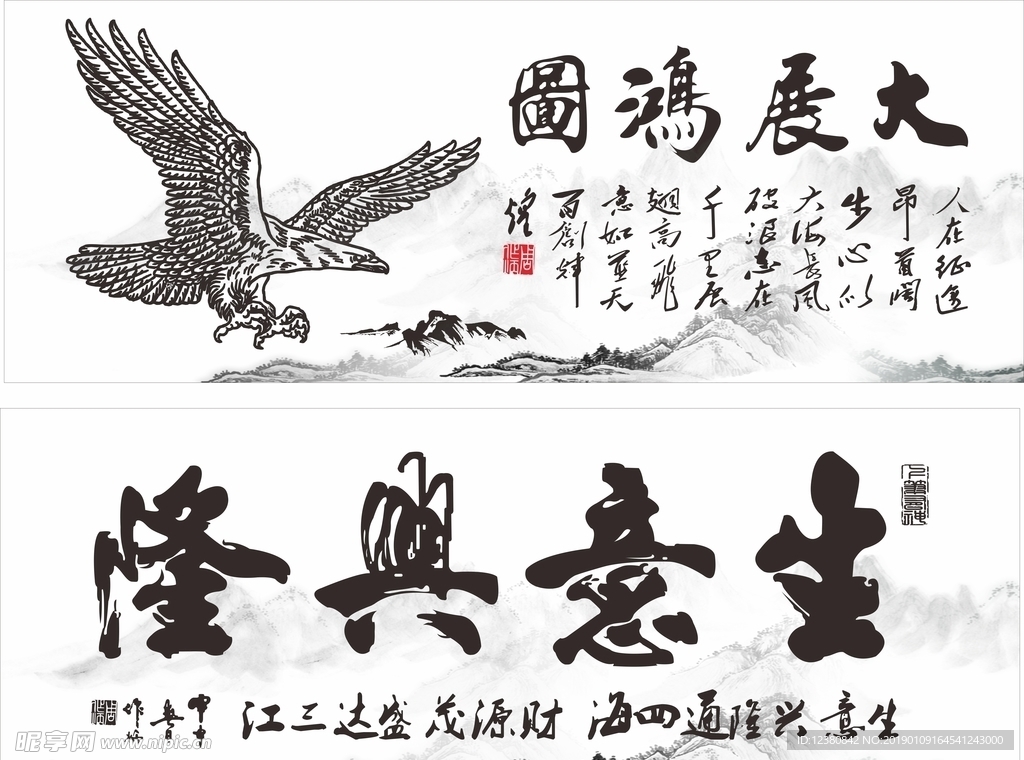 大展鴻圖
人在征途
昂首阔
步心似
大海长风
破浪志在
千里展
翅高飛
意如蓝天
再創辉
煌
生意興隆
生意兴隆通四海 财源茂盛达三江
昵享网 www.nipic.cn
ID:12380842 NO:20190109164541243000